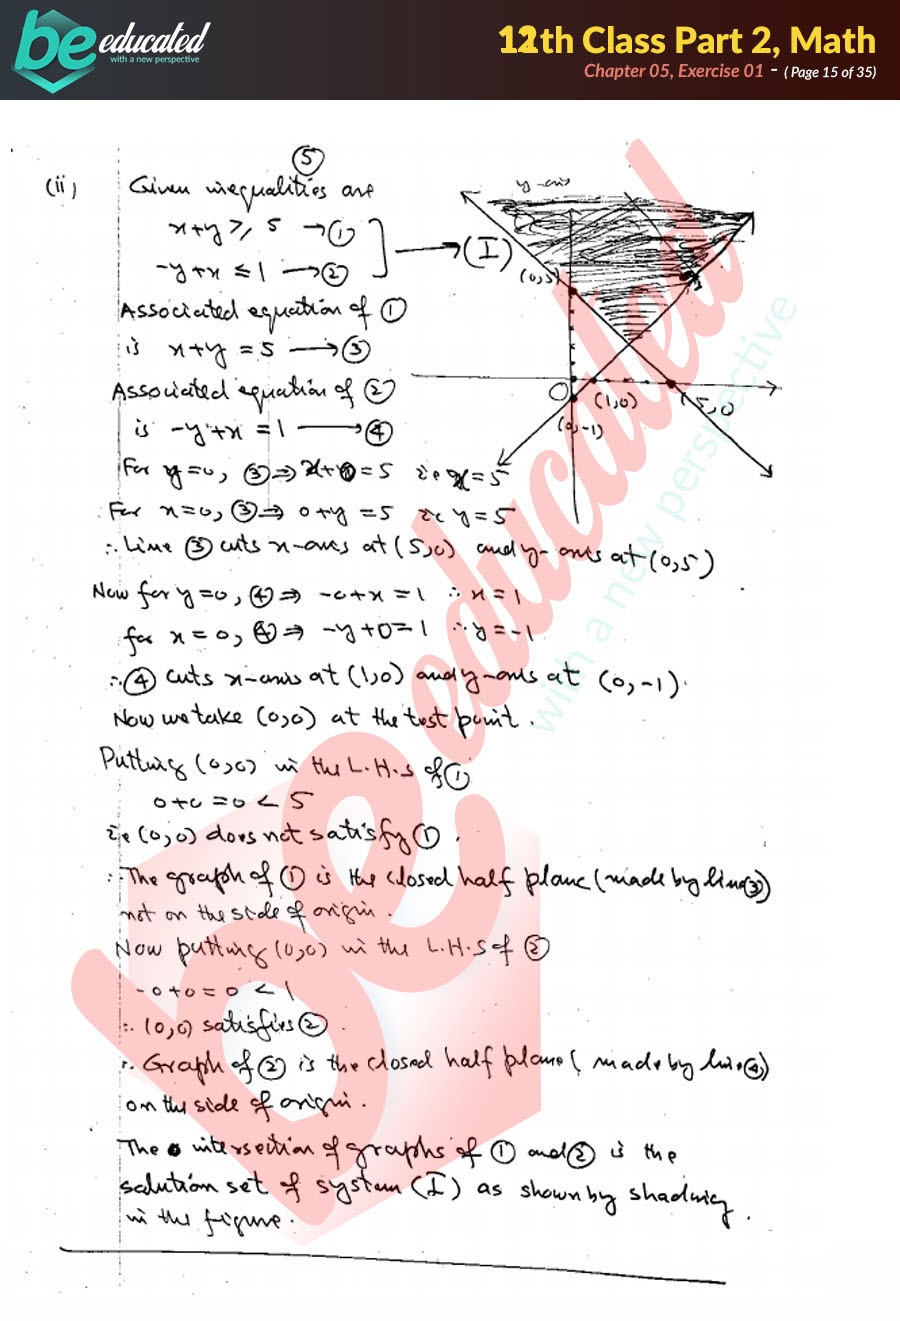 be educated
with a new perspective
12th Class Part 2, Math
Chapter 05, Exercise 01 - ( Page 15 of 35)
5
(ii) Given inequalities are
x+y ≥ 5 → ①
-y+x ≤ 1 → ②
→ (I)
y-axis
(0,5)
O
(1,0)
(5,0
(0,-1)
Associated equation of ①
is x+y = 5 → ③
Associated equation of ②
is -y+x = 1 → ④
For y=0, ③ ⇒ x+0=5 i.e x=5
For x=0, ③ ⇒ 0+y =5 i.e y=5
∴ Line ③ cuts x-axis at (5,0) and y-axis at (0,5)
Now for y=0, ④ ⇒ -0+x=1 ∴ x=1
for x=0, ④ ⇒ -y+0=1 ∴ y=-1
∴ ④ cuts x-axis at (1,0) and y-axis at (0,-1).
Now we take (0,0) at the test point.
Putting (0,0) in the L.H.S of ①
0+0=0 < 5
i.e (0,0) does not satisfy ①.
∴ The graph of ① is the closed half plane (made by line ③)
not on the side of origin.
Now putting (0,0) in the L.H.S of ②
-0+0=0 < 1
∴ (0,0) satisfies ②.
∴ Graph of ② is the closed half plane ( made by line ④)
on the side of origin.
The intersection of graphs of ① and ② is the
solution set of system (I) as shown by shading
in the figure.
be educated
with a new perspective